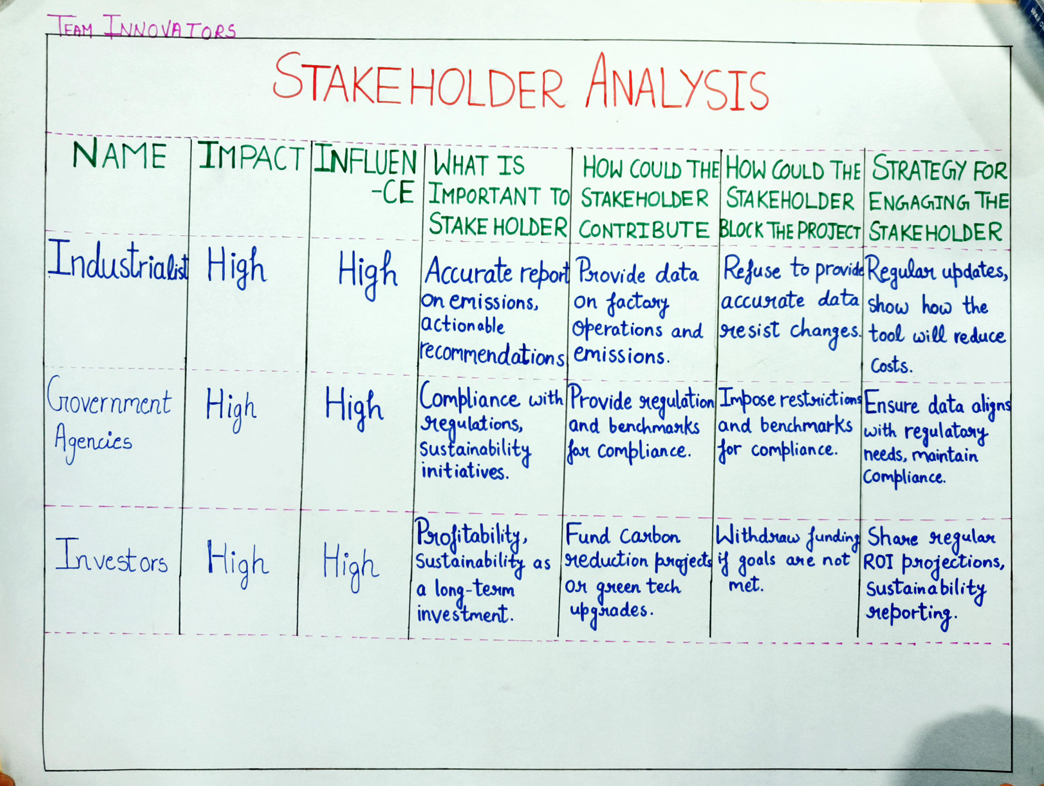 TEAM INNOVATORS
STAKEHOLDER ANALYSIS
NAME
IMPACT
INFLUEN
-CE
WHAT IS
IMPORTANT TO
STAKE HOLDER
HOW COULD THE
STAKEHOLDER
CONTRIBUTE
HOW COULD THE
STAKEHOLDER
BLOCK THE PROJECT
STRATEGY FOR
ENGAGING THE
STAKEHOLDER
Industrialist
High
High
Accurate report
on emissions,
actionable
recommendations
Provide data
on factory
operations and
emissions.
Refuse to provide
accurate data
resist changes.
Regular updates,
show how the
tool will reduce
costs.
Government
Agencies
High
High
Compliance with
regulations,
sustainability
initiatives.
Provide regulation
and benchmarks
for compliance.
Impose restrictions
and benchmarks
for compliance.
Ensure data aligns
with regulatory
needs, maintain
compliance.
Investors
High
High
Profitability,
Sustainability as
a long-term
investment.
Fund carbon
reduction projects
or green tech
upgrades.
Withdraw funding
if goals are not
met.
Share regular
ROI projections,
sustainability
reporting.